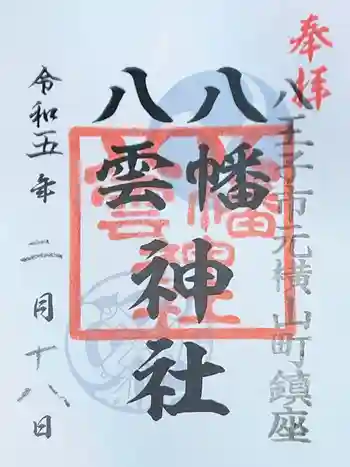 奉拝
八王子市元横山町鎮座
八幡
八雲
神社
令和五年二月十八日